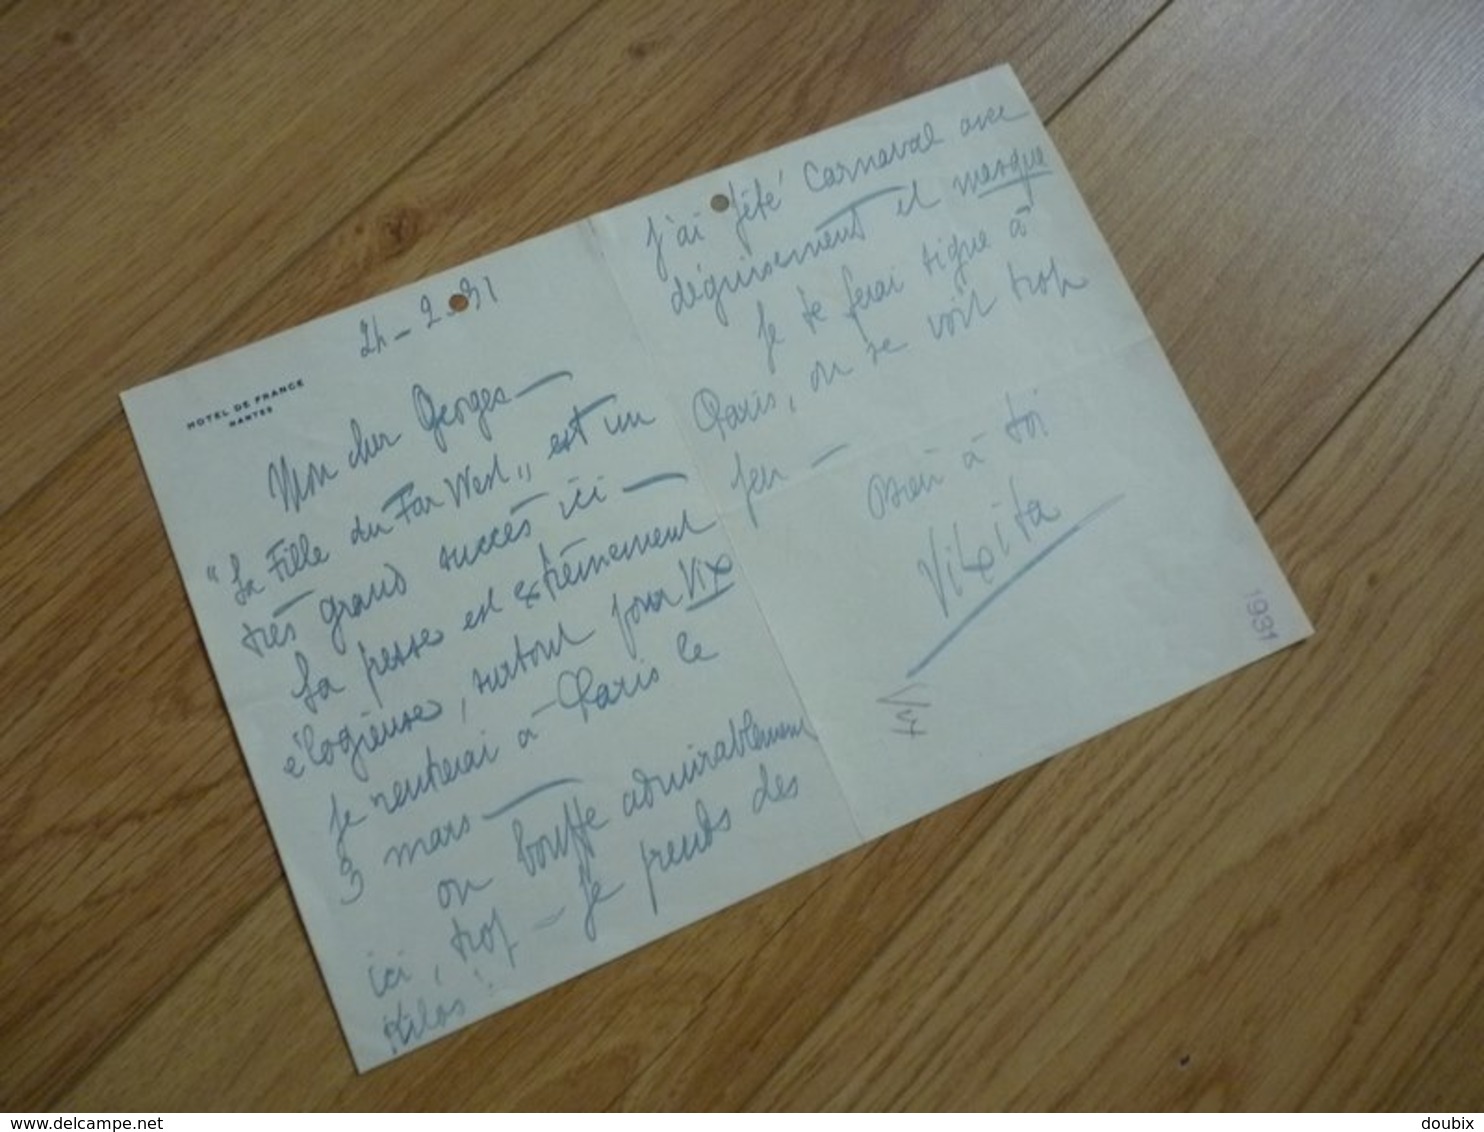 HOTEL DE FRANCE
NANTES
24-2-31
Mon cher Georges—
"La Fille du Far West" est un
très grand succès ici —
La presse est extrêmement
élogieuse, surtout pour Vix
Je rentrerai à Paris le
3 mars —
on bouffe admirablement
ici, trop — Je prends des
kilos!
J'ai fêté Carnaval avec
déguisement et masque
Je te ferai signe à
Paris, on se voit trop
peu —
Bien à toi
Vixita
Vix
1931
delcampe.net
doubix